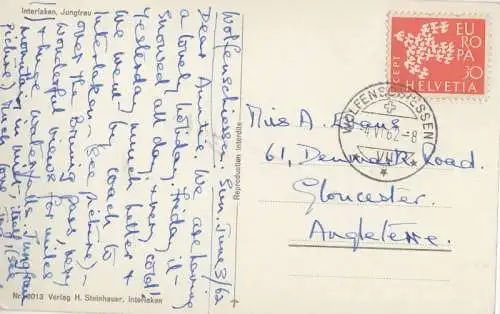 Interlaken, Jungfrau
Wolfenschiessen. Sun. June 3/62
Dear Auntie. We are having
a lovely holiday. Friday it
snowed all day, & very cold!
Yesterday much better &
we went by coach to
Interlaken – (see picture) –
over the Brunig Pass, very
wonderful views for miles
& huge waterfalls. Jungfrau
mountain in mist, still, (see
picture) Much love,
Nr. 6013 Verlag H. Steinhauer, Interlaken
Reproduction interdite
EUROPA
CEPT
30
HELVETIA
WOLFENSCHIESSEN
4.VI.62-8
Miss A. Evans
61, Denmark Road.
Gloucester.
Angleterre.